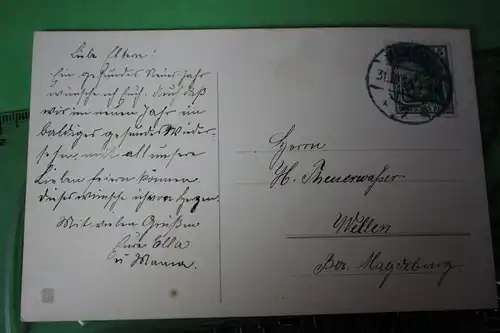 Liebe Eltern!
Ein gesundes Neues Jahr
wünsche ich Euch. Auf daß
wir im neuen Jahr ein
baldiges gesundes Wieder-
sehen mit all unsere
Lieben feiern können
dieses wünsche ich von Herzen.
Mit vielen Grüßen
Eure Ella
u Mama.
Herrn
H. Theuerwasser
Wellen
Bez. Magdeburg.
5
31.